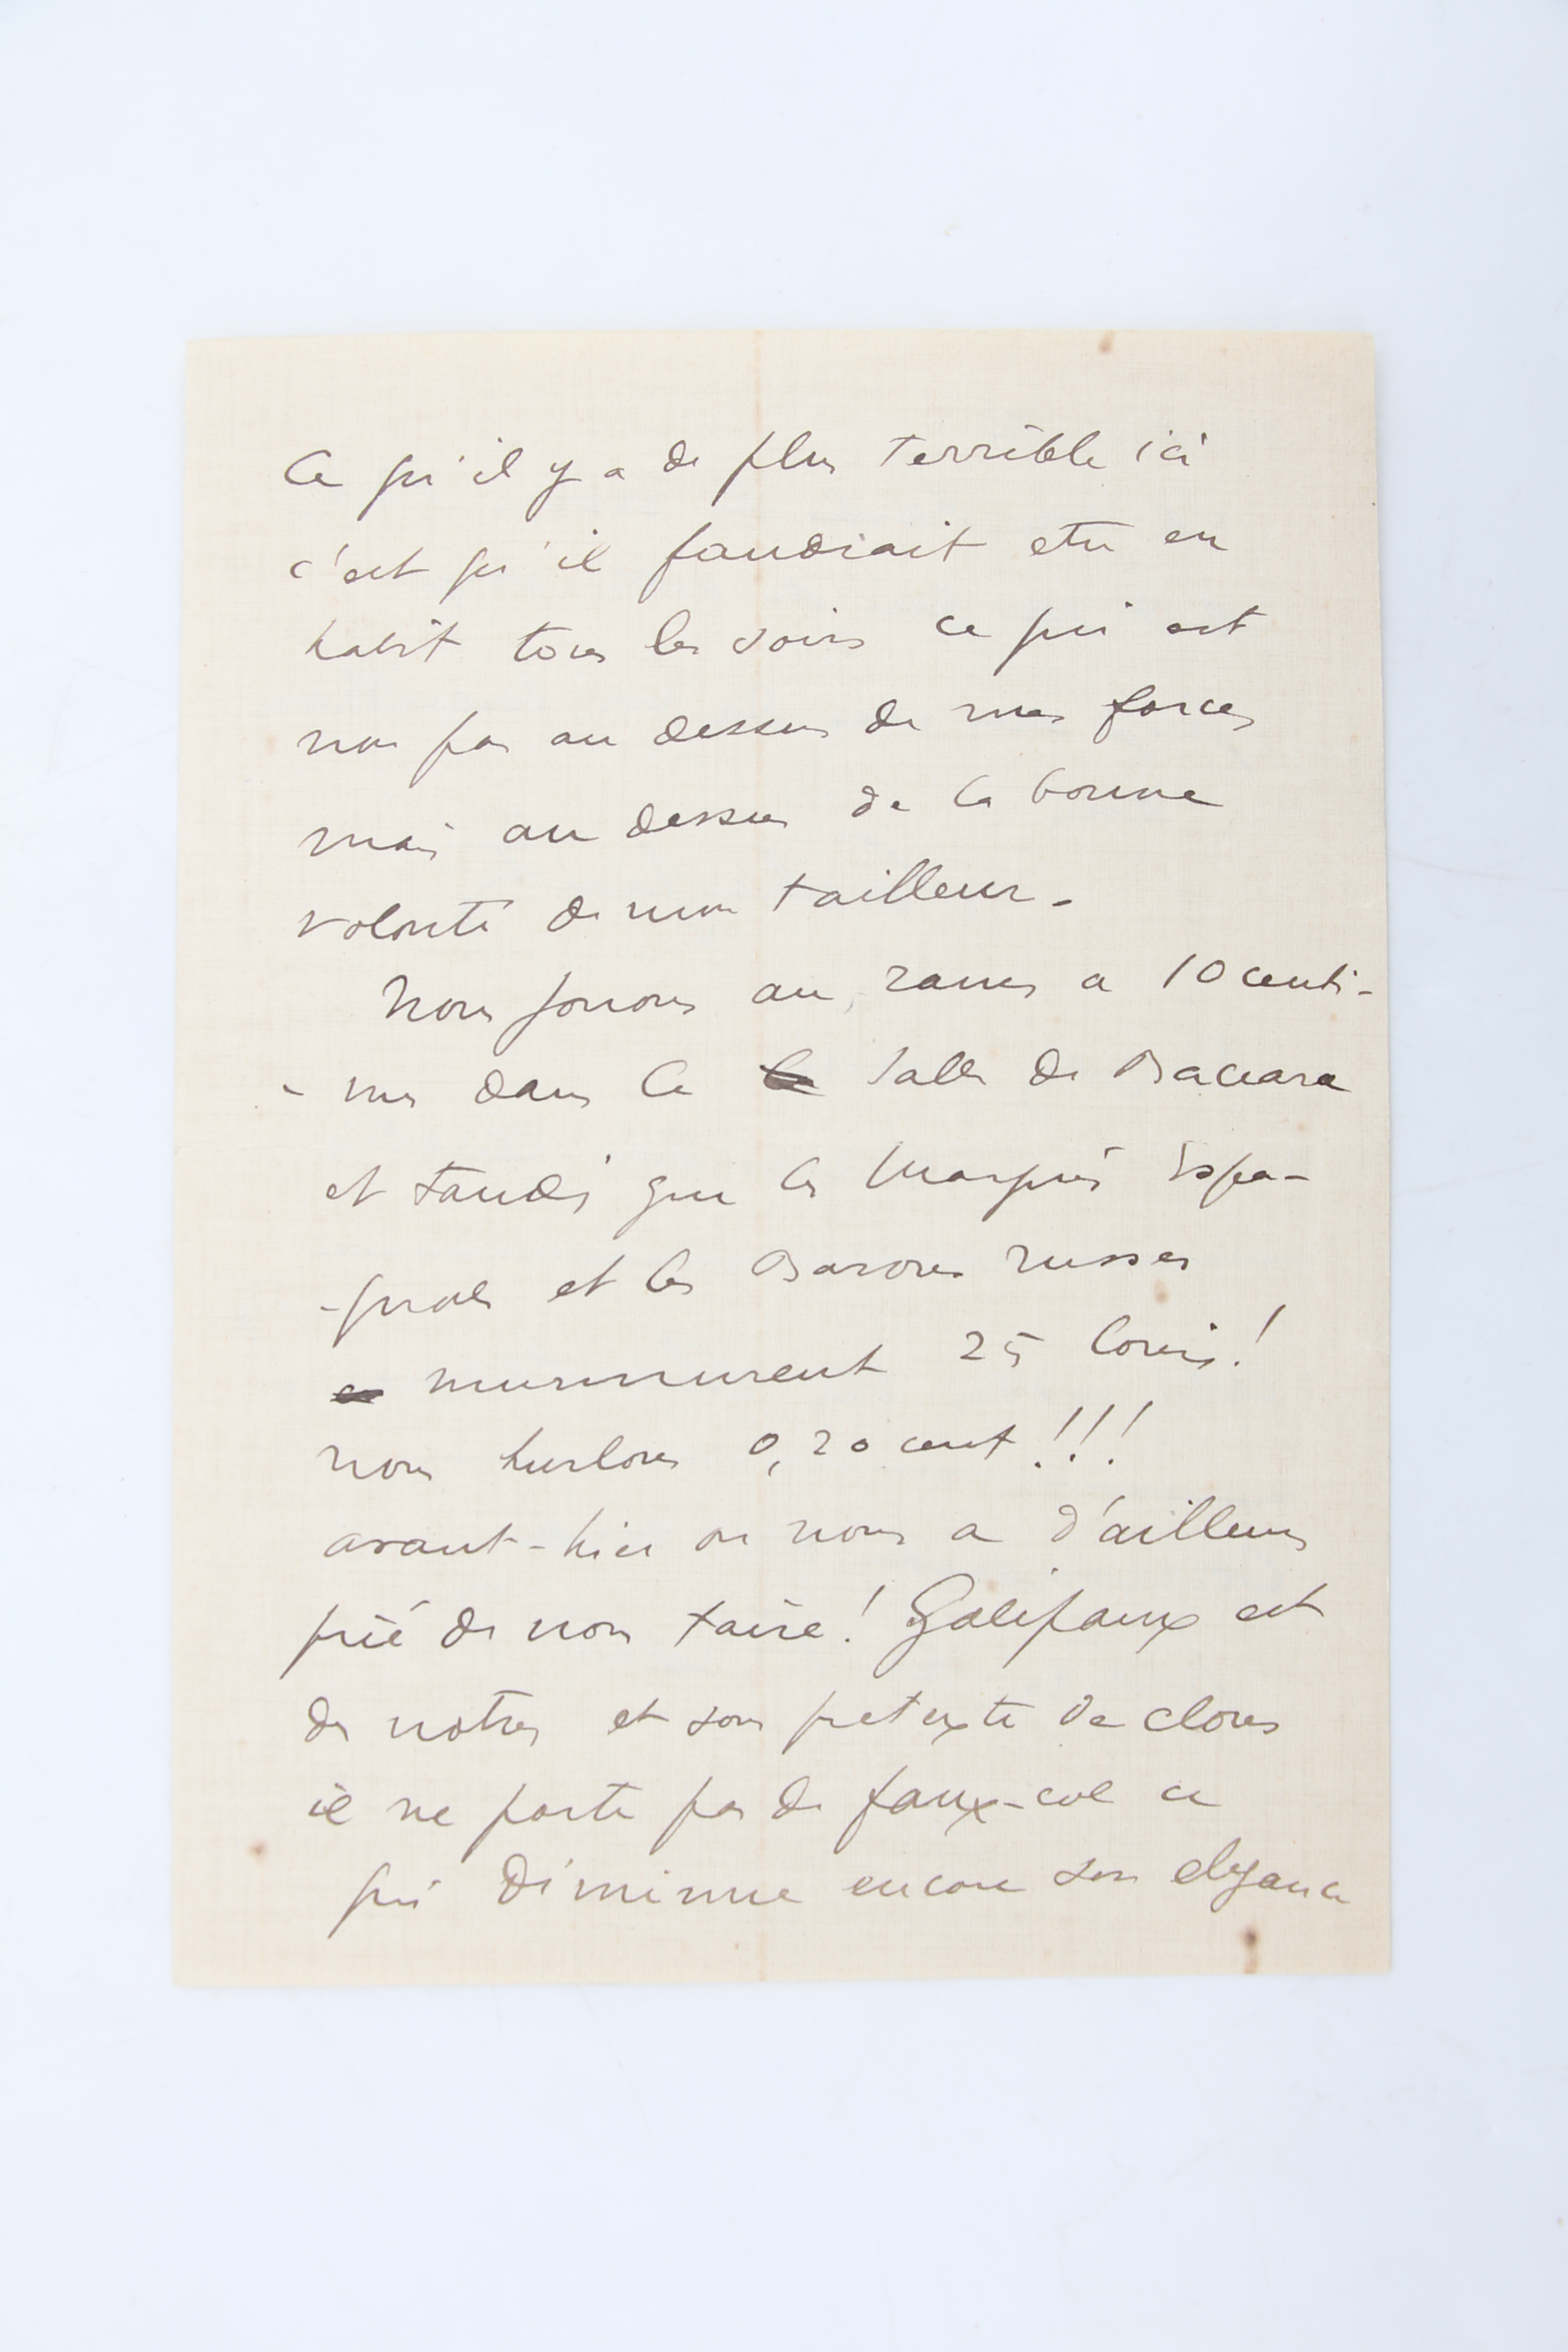 Ce qu'il y a de plus terrible ici
c'est qu'il faudrait etre en
habit tous les soirs ce qui est
non pas au dessus de mes forces
mais au dessus de la bonne
volonté de mon tailleur -
Nous jouons au rams a 10 centi-
- mes dans la salle de Baccara
et tandis que les Marquis Espa-
- gnols et les Barons russes
murmurent 25 Louis !
nous hurlons 0,20 cent !!!
avant-hier on nous a d'ailleurs
prié de nous taire ! Galipaux est
des notres et sous pretexte de clous
il ne porte pas de faux-col ce
qui diminue encore son elegance